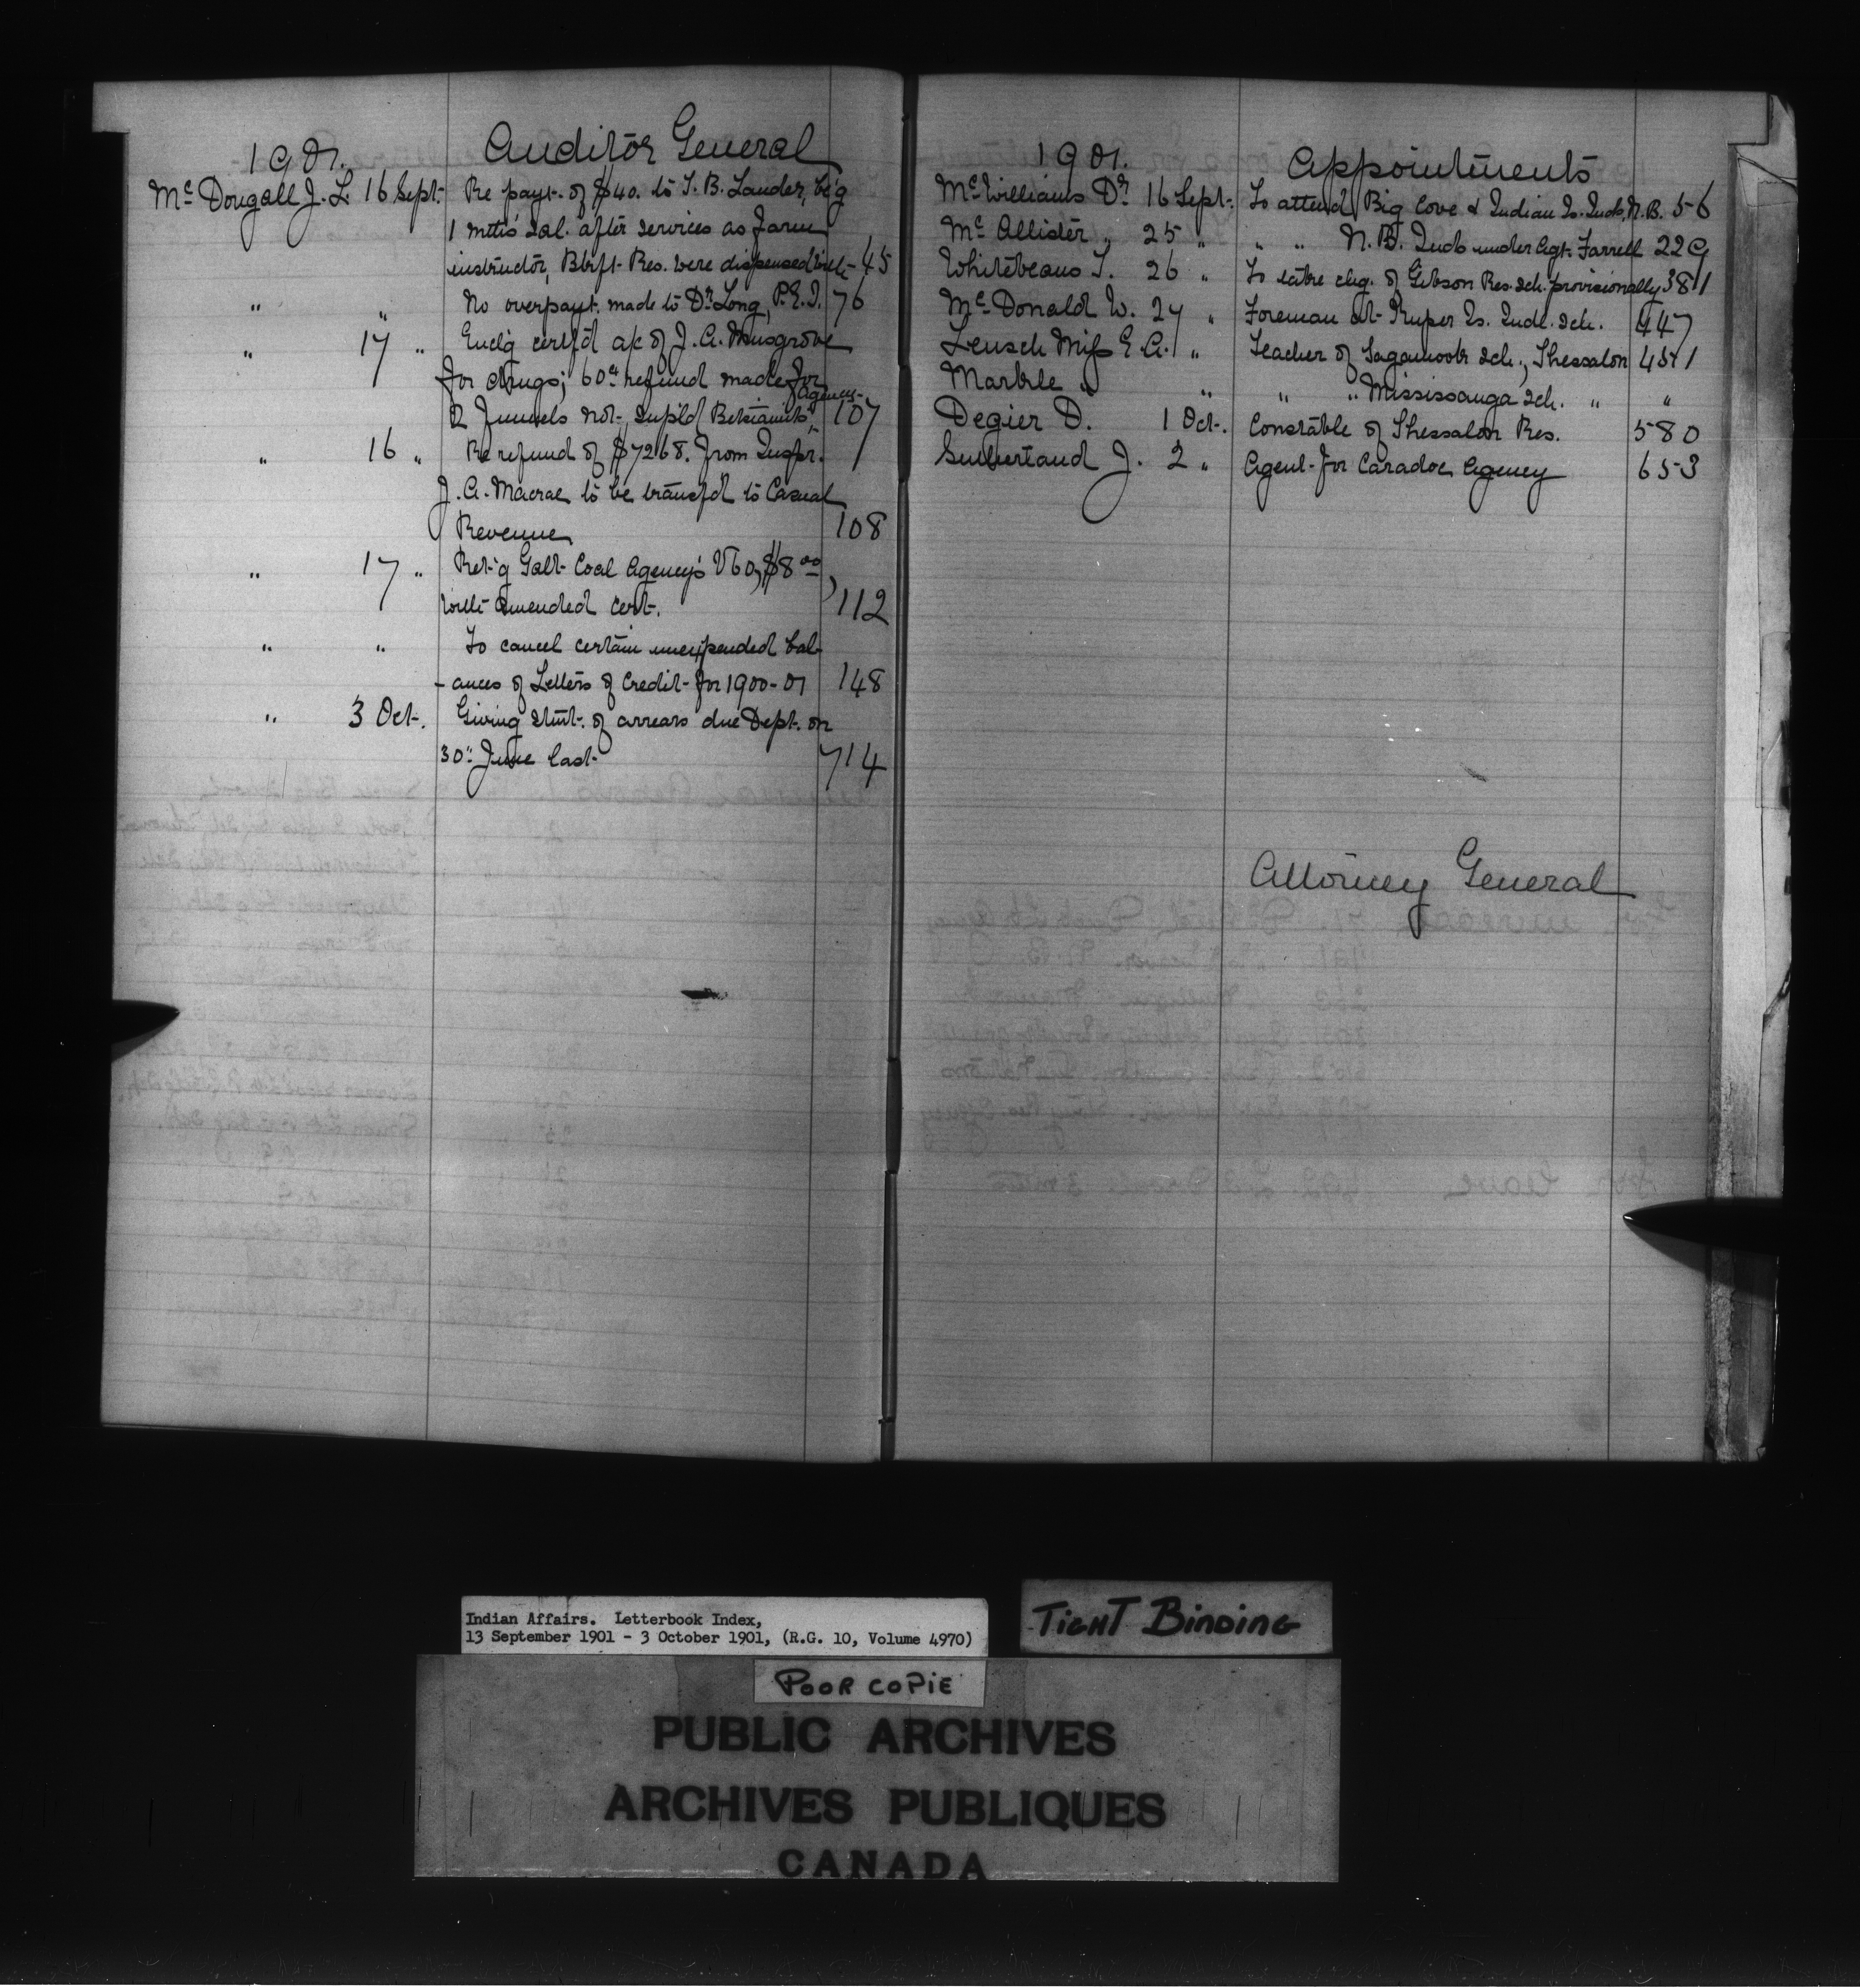 1901. Auditor General
McDougall J. L. 16 Sept. Re payt. of $40. to T. B. Lauder, be'g
1 mth's sal. after services as Farm
instructor, Blkft. Res. were dispensed with 45
" " No overpayt. made to Dr. Long, P.E.I. 76
" 17 " Encl'g certf'd a/c of J. A. Musgrove
for drugs; 60¢ refund made for
2 Funnels not supl'd Betsiamits Agency 107
" 16 " Re refund of $7268. from Inspr.
J. A. Macrae to be transf'd to Casual
Revenue 108
" 17 " Ret'g Galt Coal Agency's Vo, $8.00
with amended cert. 112
" " To cancel certain unexpended bal-
-ances of Letters of Credit for 1900-01 148
" 3 Oct. Giving stmt. of arrears due Dept. on
30" June last 714
1901. Appointments
McWilliams Dr. 16 Sept. To attend Big Cove & Indian Is. Inds, N.B. 56
McAllister " 25 " " " N.B. Inds under Agt. Farrell 229
Whitebeans T. 26 " To take chg. of Gibson Res. sch. provisionally 381
McDonald W. 27 " Foreman at Kuper Is. Indl. sch. 447
Leusch Miss E. A. " Teacher of Sagamook sch., Thessalon 451
Markle " " " " Mississauga sch. " "
Degier D. 1 Oct. Constable of Thessalon Res. 580
Sutherland J. 2 " Agent for Caradoc Agency 653
Attorney General
Indian Affairs. Letterbook Index,
13 September 1901 - 3 October 1901, (R.G. 10, Volume 4970)
TIGHT BINDING
POOR COPIE
PUBLIC ARCHIVES
ARCHIVES PUBLIQUES
CANADA